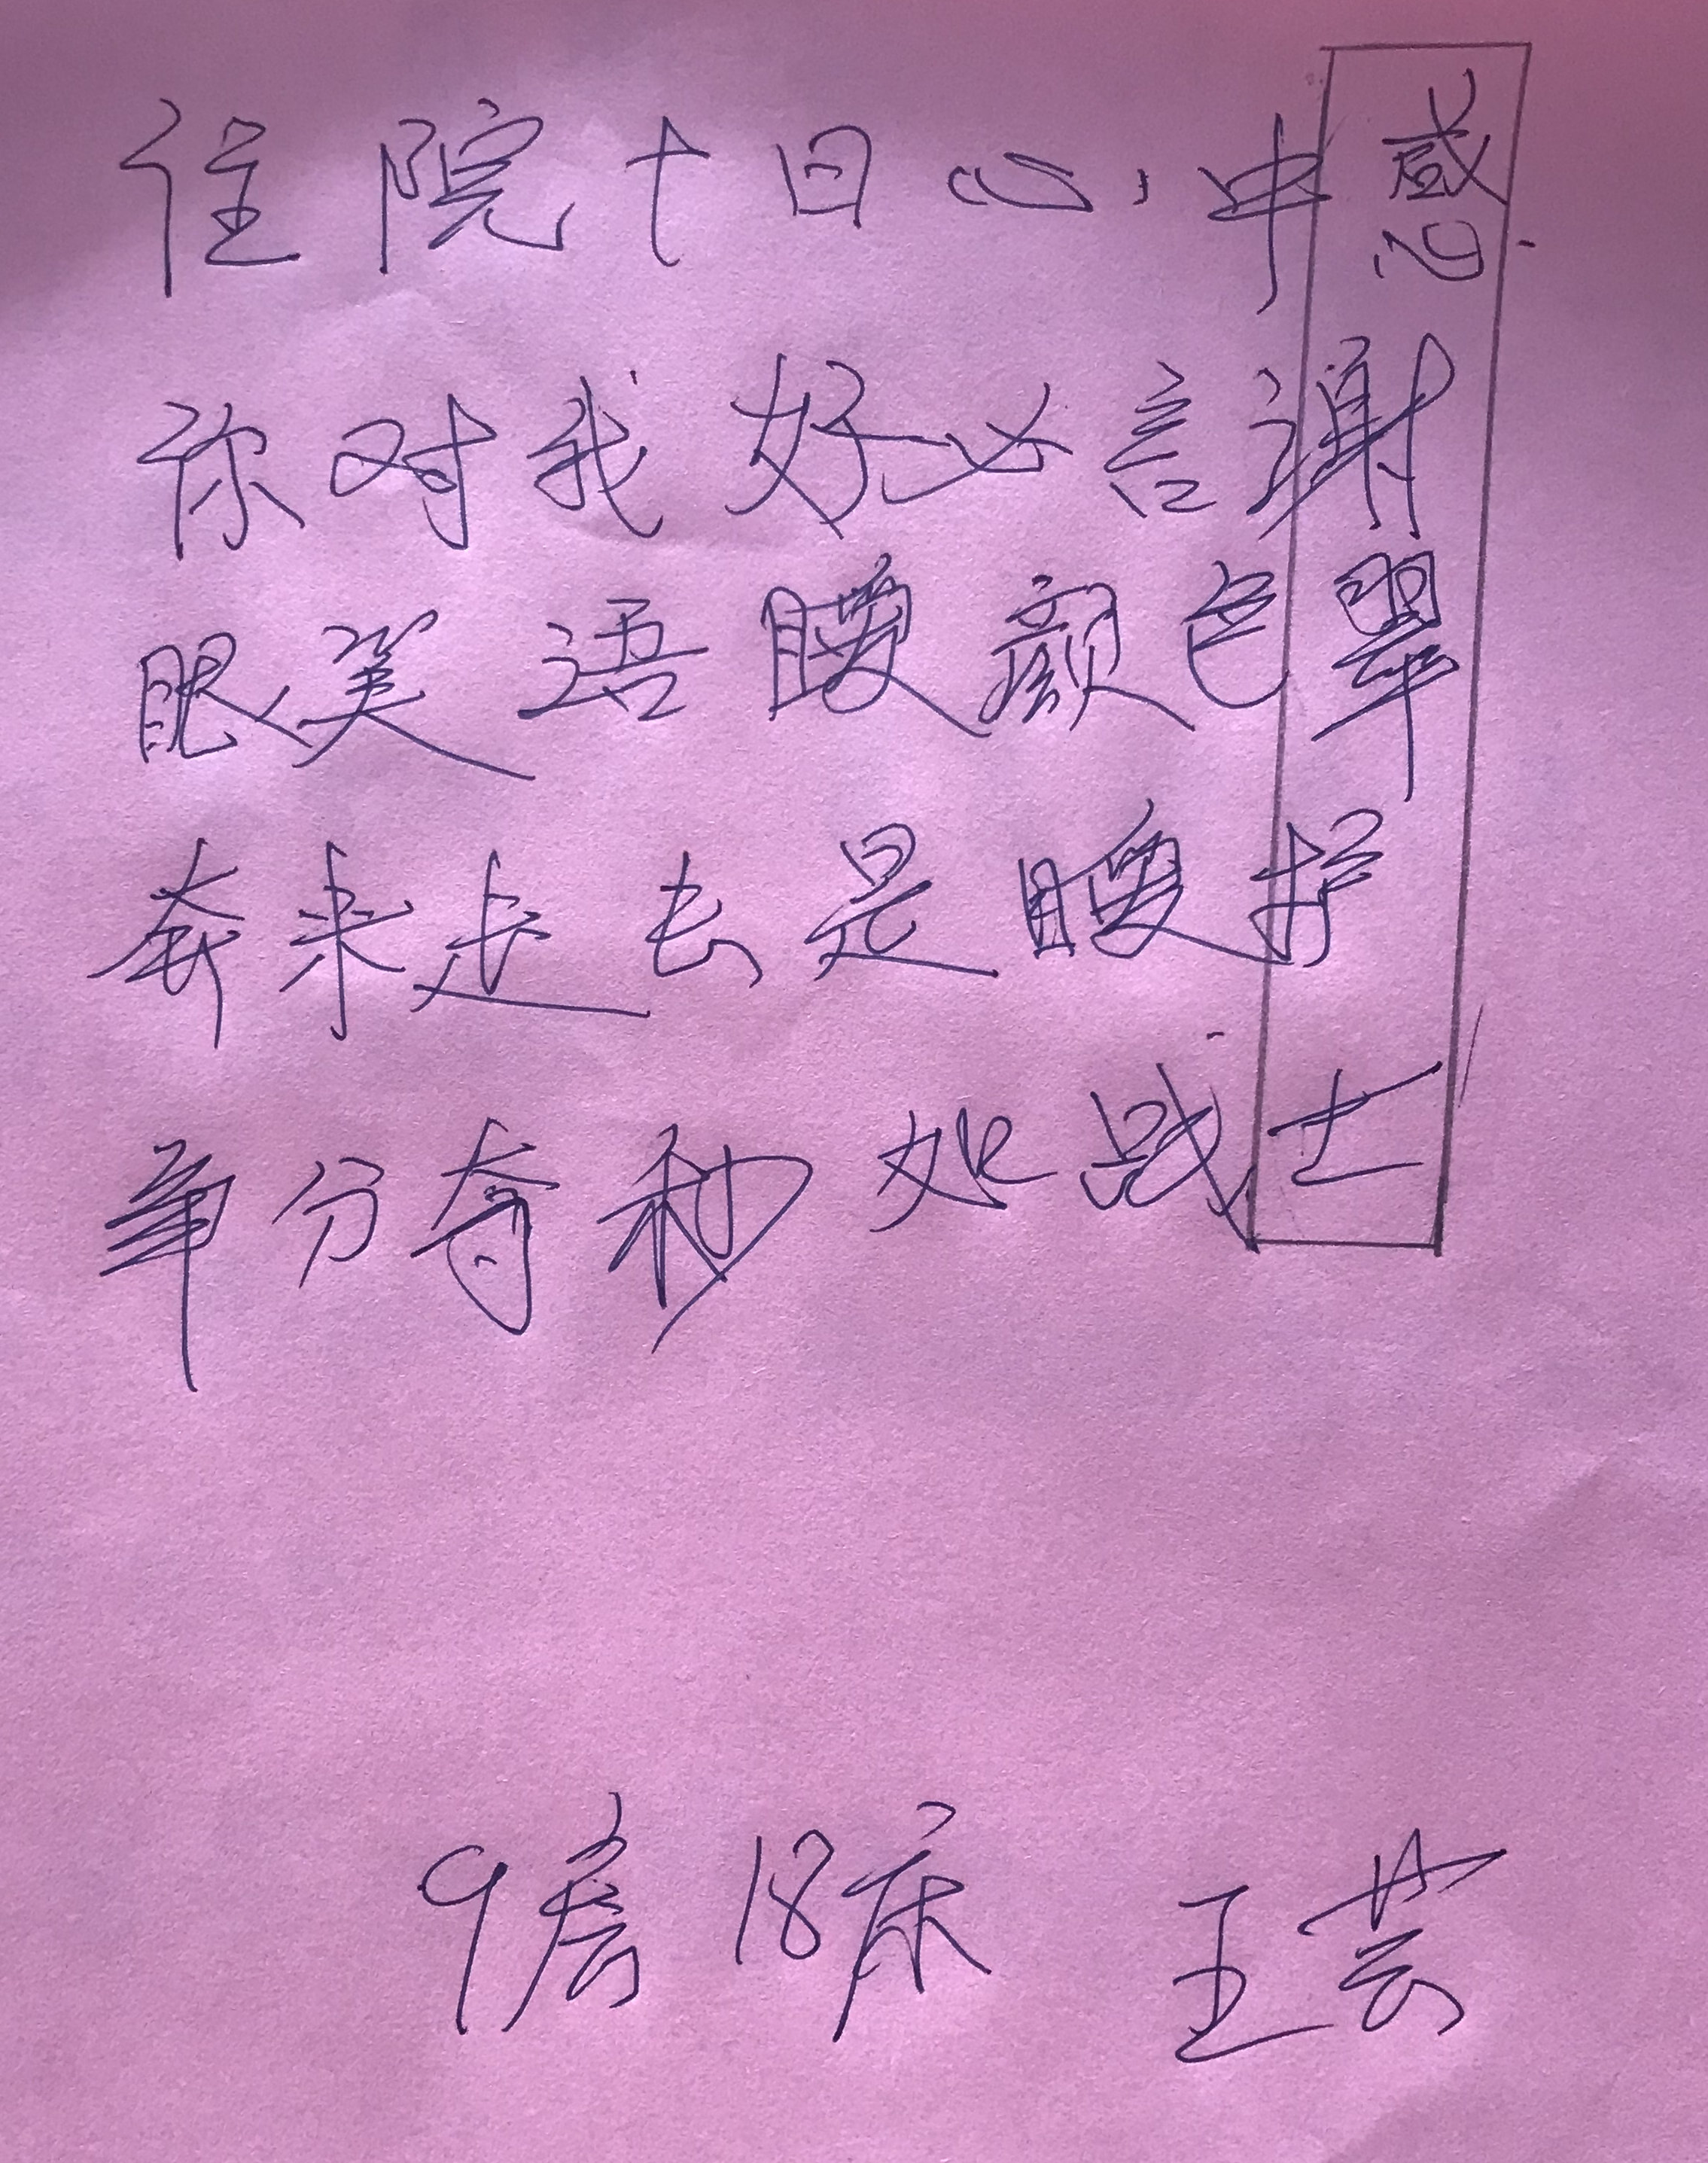 住院十日心中感
你对我好必言谢
眼笑语暖颜色翠
奔来走去是暖护
争分夺秒如战士
9房18床 王芸